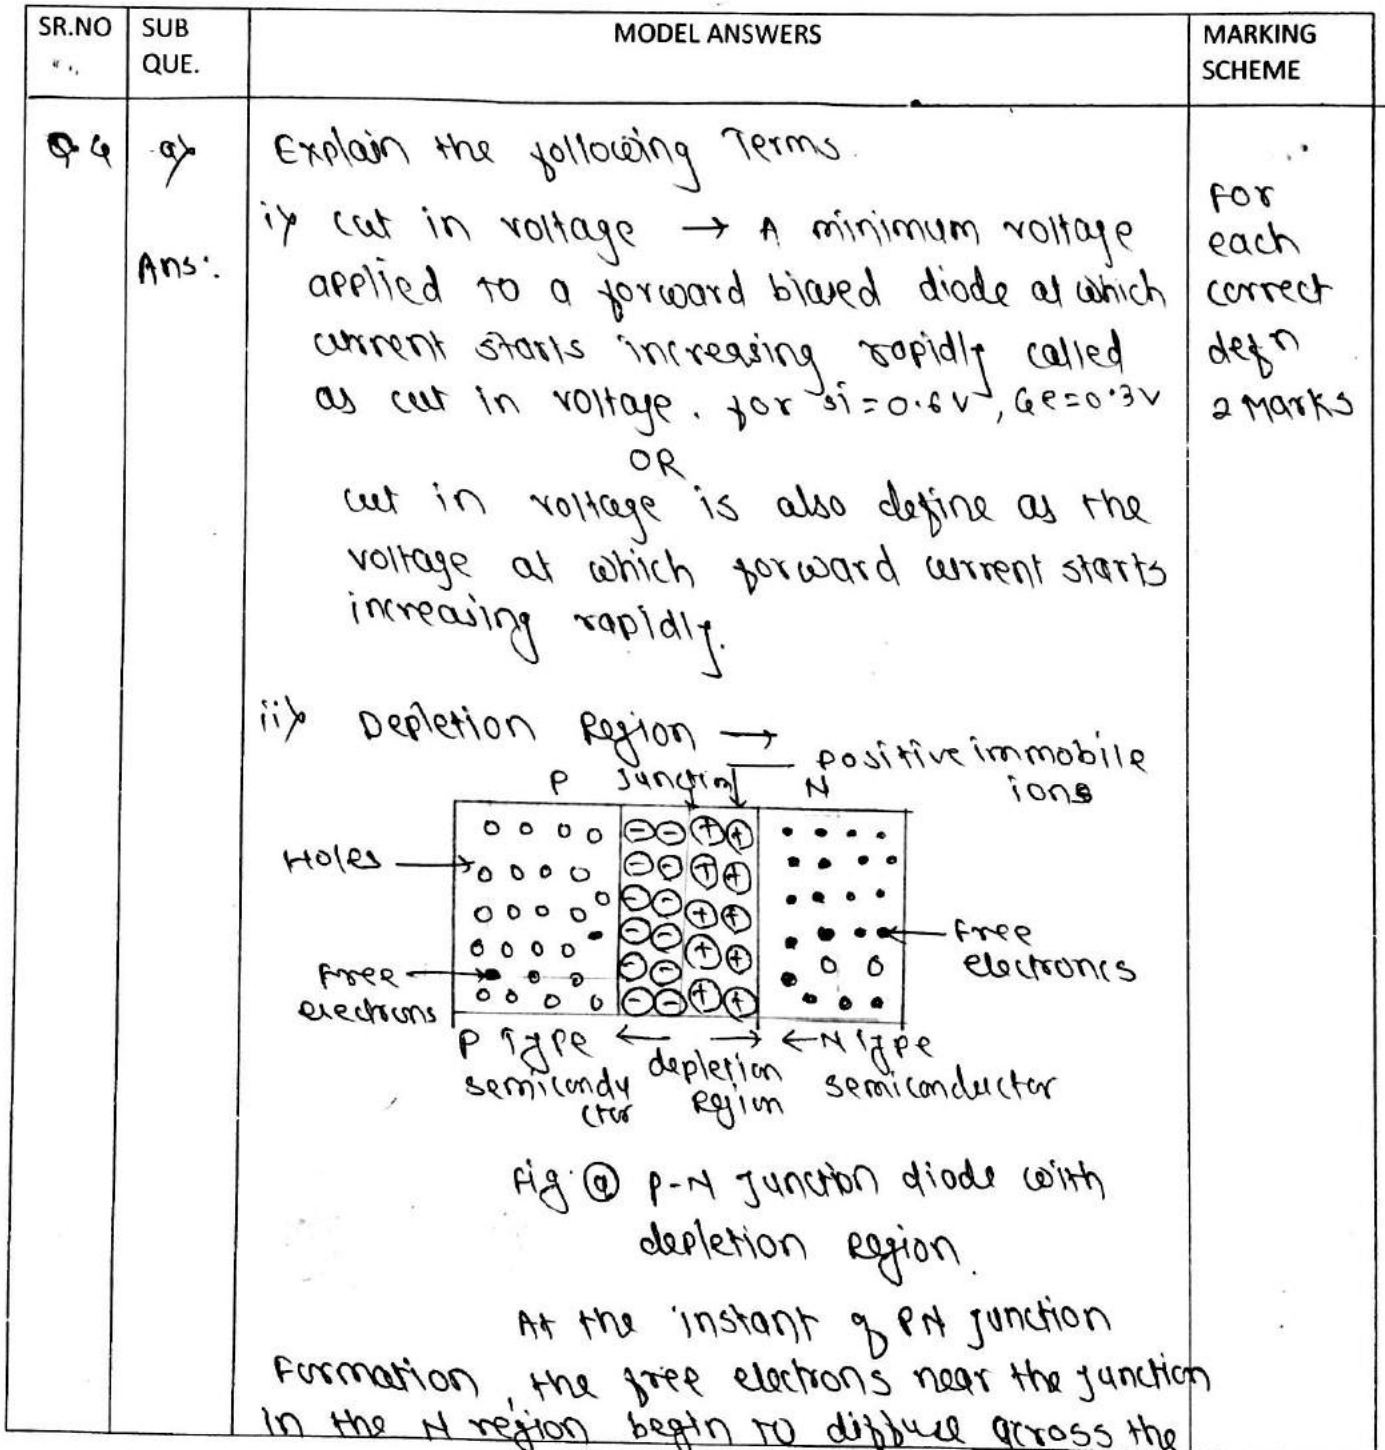 SR.NO SUB QUE. MODEL ANSWERS MARKING SCHEME
Q4 a) Explain the following Terms.
i) cut in voltage → A minimum voltage
Ans: applied to a forward biased diode at which
current starts increasing rapidly called
as cut in voltage. for si=0.6V, Ge=0.3V
For
each
correct
defn
2 Marks
OR
cut in voltage is also define as the
voltage at which forward current starts
increasing rapidly.
ii) Depletion Region →
positive immobile
ions
P junction N
Holes
Free
electrons
Free
electrons
P Type
semicondu
ctor
← depletion →
Region
← N type
semiconductor
Fig. (a) P-N Junction diode with
depletion Region.
At the instant of PN junction
Formation, the free electrons near the junction
in the N region begin to diffuse across the